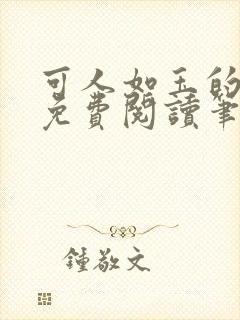 可人如玉的
免費閱讀筆
鍾敬文